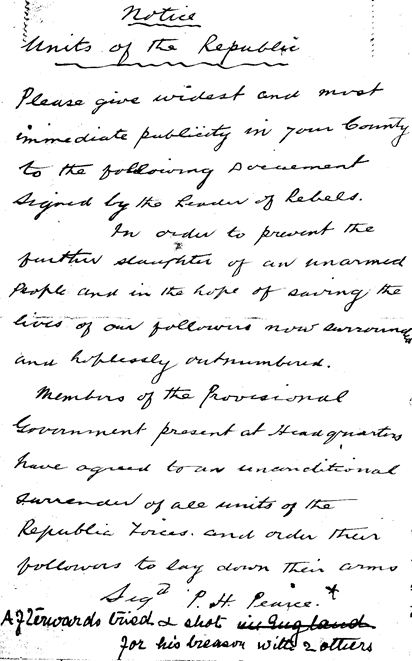 Notice
Units of the Republic
Please give widest and most
immediate publicity in your County
to the following Document
signed by the Leader of Rebels.
In order to prevent the
further slaughter of an unarmed
People and in the hope of saving the
lives of our followers now surrounded
and hoplessly outnumbered.
Members of the Provisional
Government present at Headquarters
have agreed to an unconditional
surrender of all units of the
Republic Forces. and order their
followers to lay down their arms
Sigd P. H. Pearce.*
Afterwards tried & shot in England
for his treason with 2 others